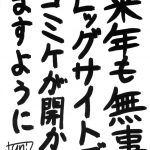 来年も無事
ビッグサイトで
コミケが開か
ますように